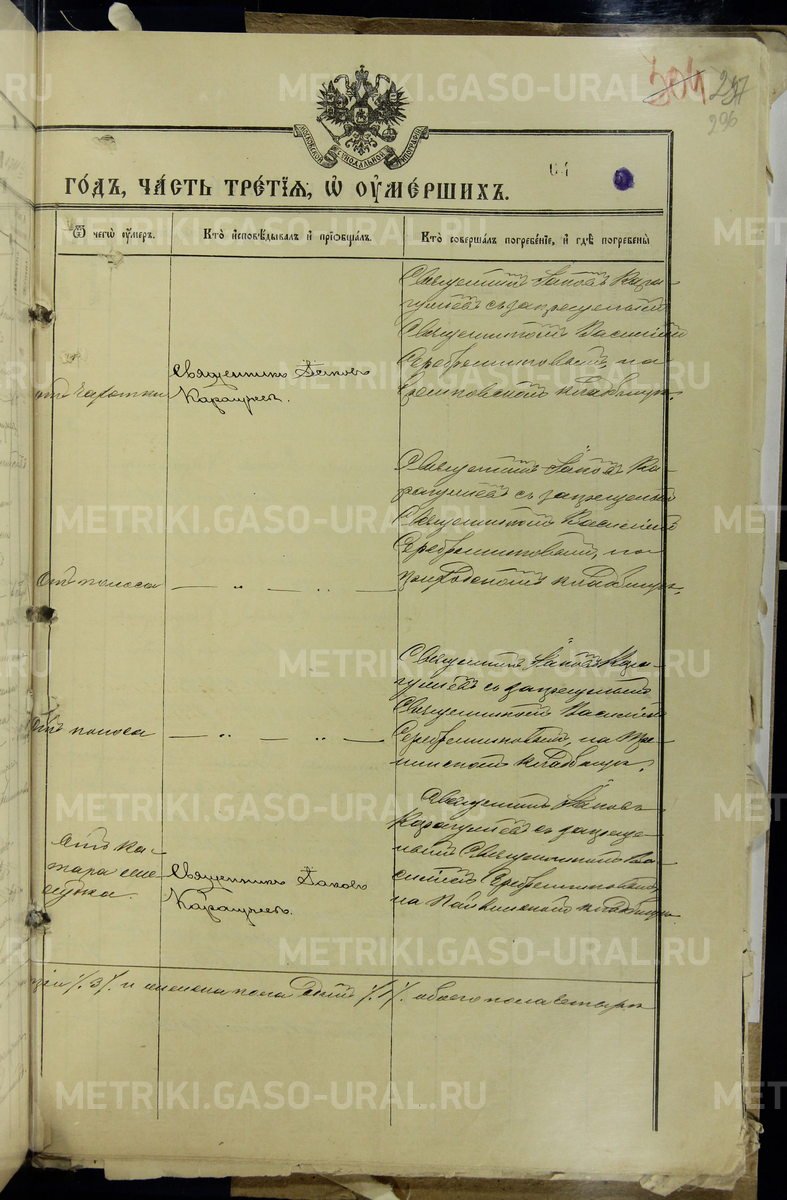 МОСКОВСКОЙ СѴНОДАЛЬНОЙ ТИПОГРАФІИ
304 257
296
64
ГО́ДЪ, ЧА́СТЬ ТРЕ́ТІѦ, Ѡ҆ ОУ҆МЕ́РШИХЪ.
Ѿ чегѡ̀ оу҆́меръ.
Кто̀ и҆сповѣ́дывалъ и҆ прїѡбща́лъ.
Кто̀ соверша́лъ погребе́нїе, и҆ гдѣ̀ погребены̀
отъ чахотки
Священникъ Іаковъ
Карагуляевъ.
Священникъ Іаковъ Кара-
гуляевъ съ запрещенымъ
Священникомъ Василіемъ
Серебрениковымъ, на
кладбищѣ.
Отъ поноса
— „ — „ —
Священникъ Іаковъ Ка-
рагуляевъ съ запрещеным
Священникомъ Василіемъ
Серебрениковымъ, на
кладбищѣ.
Отъ поноса
— „ — „ —
Священникъ Іаковъ Кара-
гуляевъ съ запрещенымъ
Священникомъ Василіемъ
Серебрениковымъ, на
кладбищѣ.
Отъ ка-
тара же
лудка.
Священникъ Іаковъ
Карагуляевъ.
Священникъ Іаковъ
Карагуляевъ съ запреще-
нымъ Священникомъ Ва-
силіемъ Серебрениковымъ,
на кладбищѣ
и женска пола обоего пола четыре
METRIKI.GASO-URAL.RU